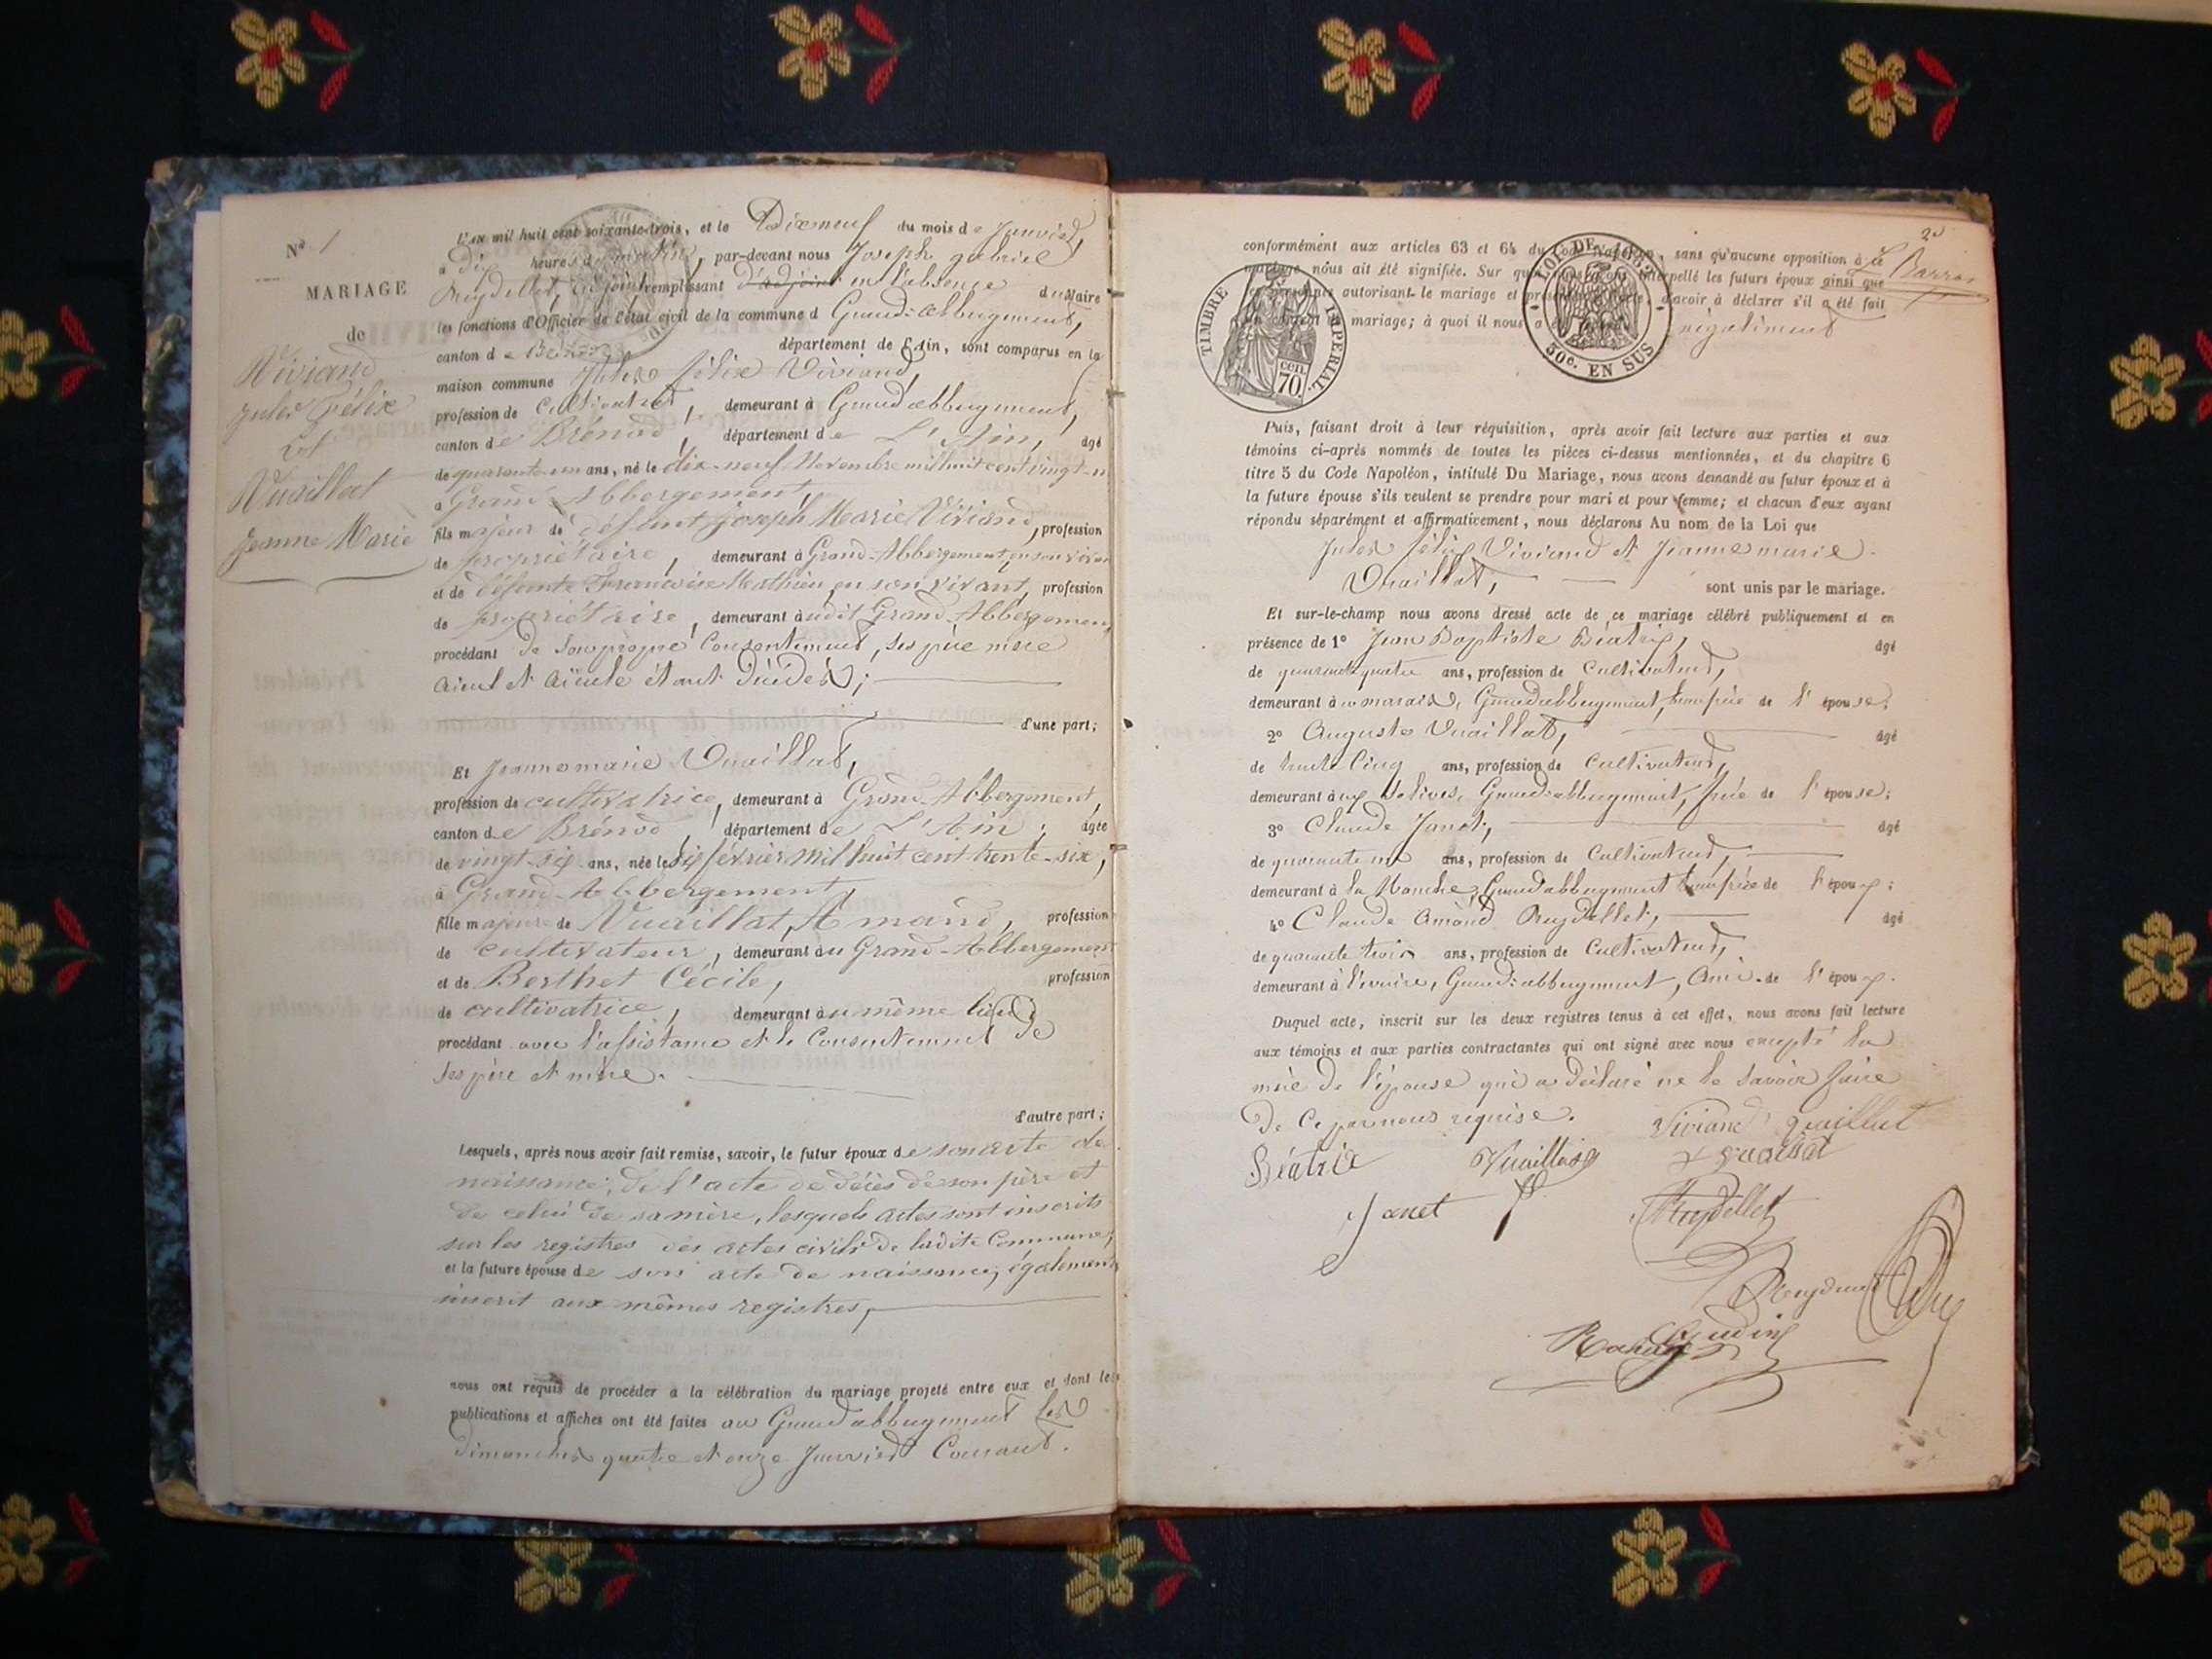 N° 1
MARIAGE
de
Viviand
Jules Félix
Et
Vuaillat
Jeanne Marie
L'an mil huit cent soixante-trois, et le Dixneuf du mois de Janvier,
à Dix heures du matin, par-devant nous Joseph gabriel
Reydellet, adjoint remplissant d'adjoint en l'absence du Maire
les fonctions d'Officier de l'état civil de la commune d Grand-abbergement,
canton de Brénod département de l'Ain, sont comparus en la
maison commune Jules félix Viviand,
profession de Cultivateur, demeurant à Grand abbergement,
canton de Brénod, département de L'Ain, âgé
de quarante-un ans, né le dix-neuf Novembre mil huit cent vingt-un
à Grand-Abbergement,
fils majeur de défunt Joseph Marie Viviand, profession
de propriétaire, demeurant à Grand-Abbergement, en son vivant
et de défunte Françoise Mathieu en son vivant, profession
de propriétaire, demeurant audit Grand-Abbergement
procédant de son propre Consentement, ses père mère
aieul et aïeule étant décédés;
d'une part;
Et Jeanne marie Vuaillat,
profession de cultivatrice, demeurant à Grand-Abbergement,
canton de Brénod, département de L'Ain, âgée
de vingt-six ans, née le six février mil huit cent trente-six,
à Grand-Abbergement,
fille majeure de Vuaillat, Amand, profession
de cultivateur, demeurant au Grand-Abbergement
et de Berthet Cécile, profession
de cultivatrice, demeurant au même lieu
procédant avec l'assistance et le Consentement de
ses père et mère.
d'autre part;
Lesquels, après nous avoir fait remise, savoir, le futur époux de son acte de
naissance, de l'acte de décès de son père et
de celui de sa mère, lesquels actes sont inscrits
sur les registres des actes civils de ladite Commune,
et la future épouse de son acte de naissance, également
inscrit aux mêmes registres,
nous ont requis de procéder à la célébration du mariage projeté entre eux et dont les
publications et affiches ont été faites au Grand abbergement les
dimanches quatre et onze Janvier Courant.
conformément aux articles 63 et 64 du Code Napoléon, sans qu'aucune opposition à ce
mariage nous ait été signifiée. Sur quoi nous avons interpellé les futurs époux ainsi que
les personnes autorisant le mariage et présentes à l'acte, d'avoir à déclarer s'il a été fait
un contrat de mariage; à quoi il nous a été répondu négativement
2d
Barras
TIMBRE IMPERIAL
70 cen.
LOI DE 1862
50c. EN SUS
Puis, faisant droit à leur réquisition, après avoir fait lecture aux parties et aux
témoins ci-après nommés de toutes les pièces ci-dessus mentionnées, et du chapitre 6
titre 5 du Code Napoléon, intitulé Du Mariage, nous avons demandé au futur époux et à
la future épouse s'ils veulent se prendre pour mari et pour femme; et chacun d'eux ayant
répondu séparément et affirmativement, nous déclarons Au nom de la Loi que
Jules félix Viviand et Jeanne marie
Vuaillat, sont unis par le mariage.
Et sur-le-champ nous avons dressé acte de ce mariage célébré publiquement et en
présence de 1° Jean Baptiste Béatrix, âgé
de quarante quatre ans, profession de Cultivateur,
demeurant à marais, Grand abbergement, beau frère de l'épouse;
2° Auguste Vuaillat, âgé
de trente Cinq ans, profession de Cultivateur,
demeurant aux Solives, Grand-abbergement, frère de l'épouse;
3° Claude Janet, âgé
de quarante un ans, profession de Cultivateur,
demeurant à la Manche, Grand abbergement beau frère de l'époux;
4° Claude Amand Reydellet, âgé
de quarante trois ans, profession de Cultivateur,
demeurant à Grand-abbergement, Ami de l'époux.
Duquel acte, inscrit sur les deux registres tenus à cet effet, nous avons fait lecture
aux témoins et aux parties contractantes qui ont signé avec nous excepté la
mère de l'épouse qui a déclaré ne le savoir faire
de ce par nous requise.
Viviand Vuaillat
Béatrix Vuaillat Vuaillat
Janet Reydellet